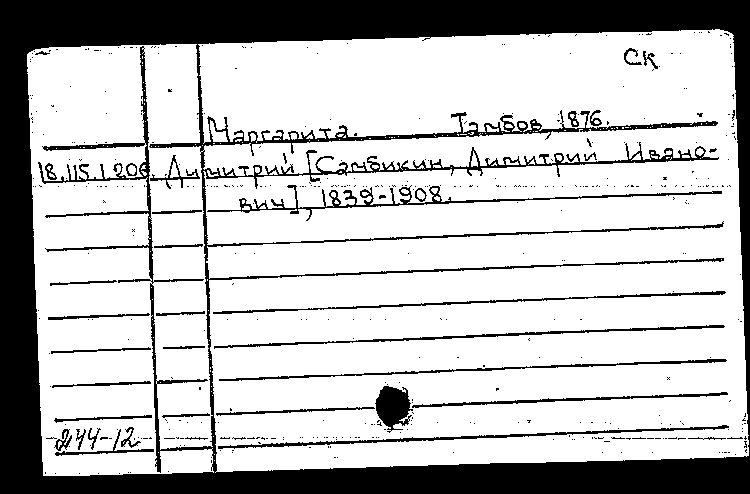 СК
Маргарита. Тамбов, 1876.
18.115.1.206. Димитрий [Самбикин, Димитрий Ивано-
вич], 1839-1908.
244-12